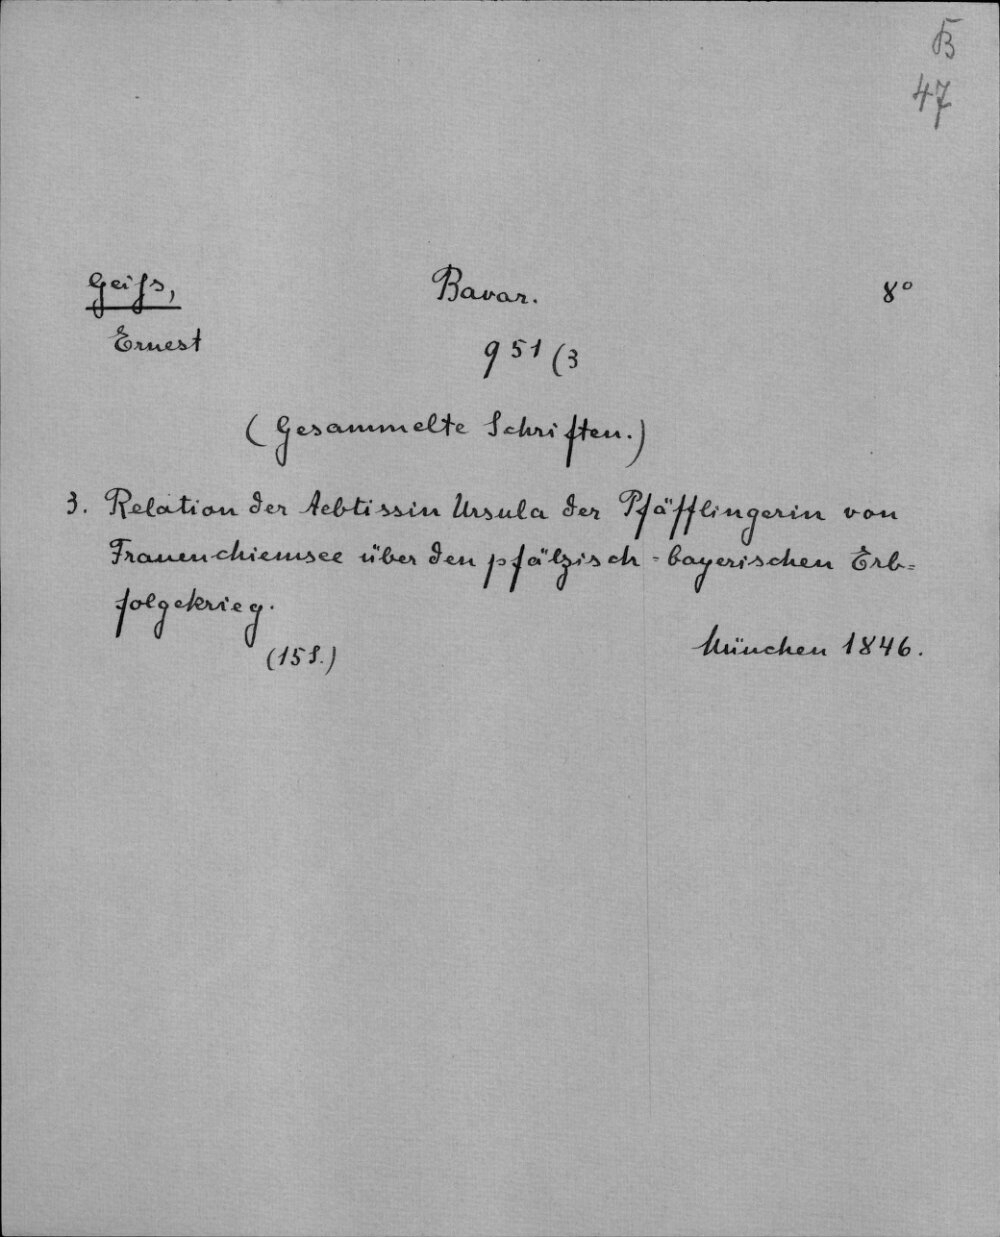 B
47
Geiſs,
Bavar.
8°
Ernest
951(3
(Gesammelte Schriften.)
3. Relation der Aebtissin Ursula der Pfäfflingerin von
Frauenchiemsee über den pfälzisch-bayerischen Erb=
folgekrieg.
(15 S.)
München 1846.